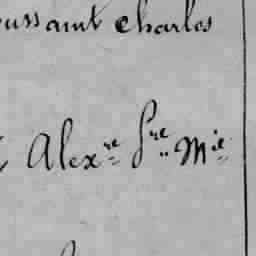 oussaint Charles
Alexre Pre Mie